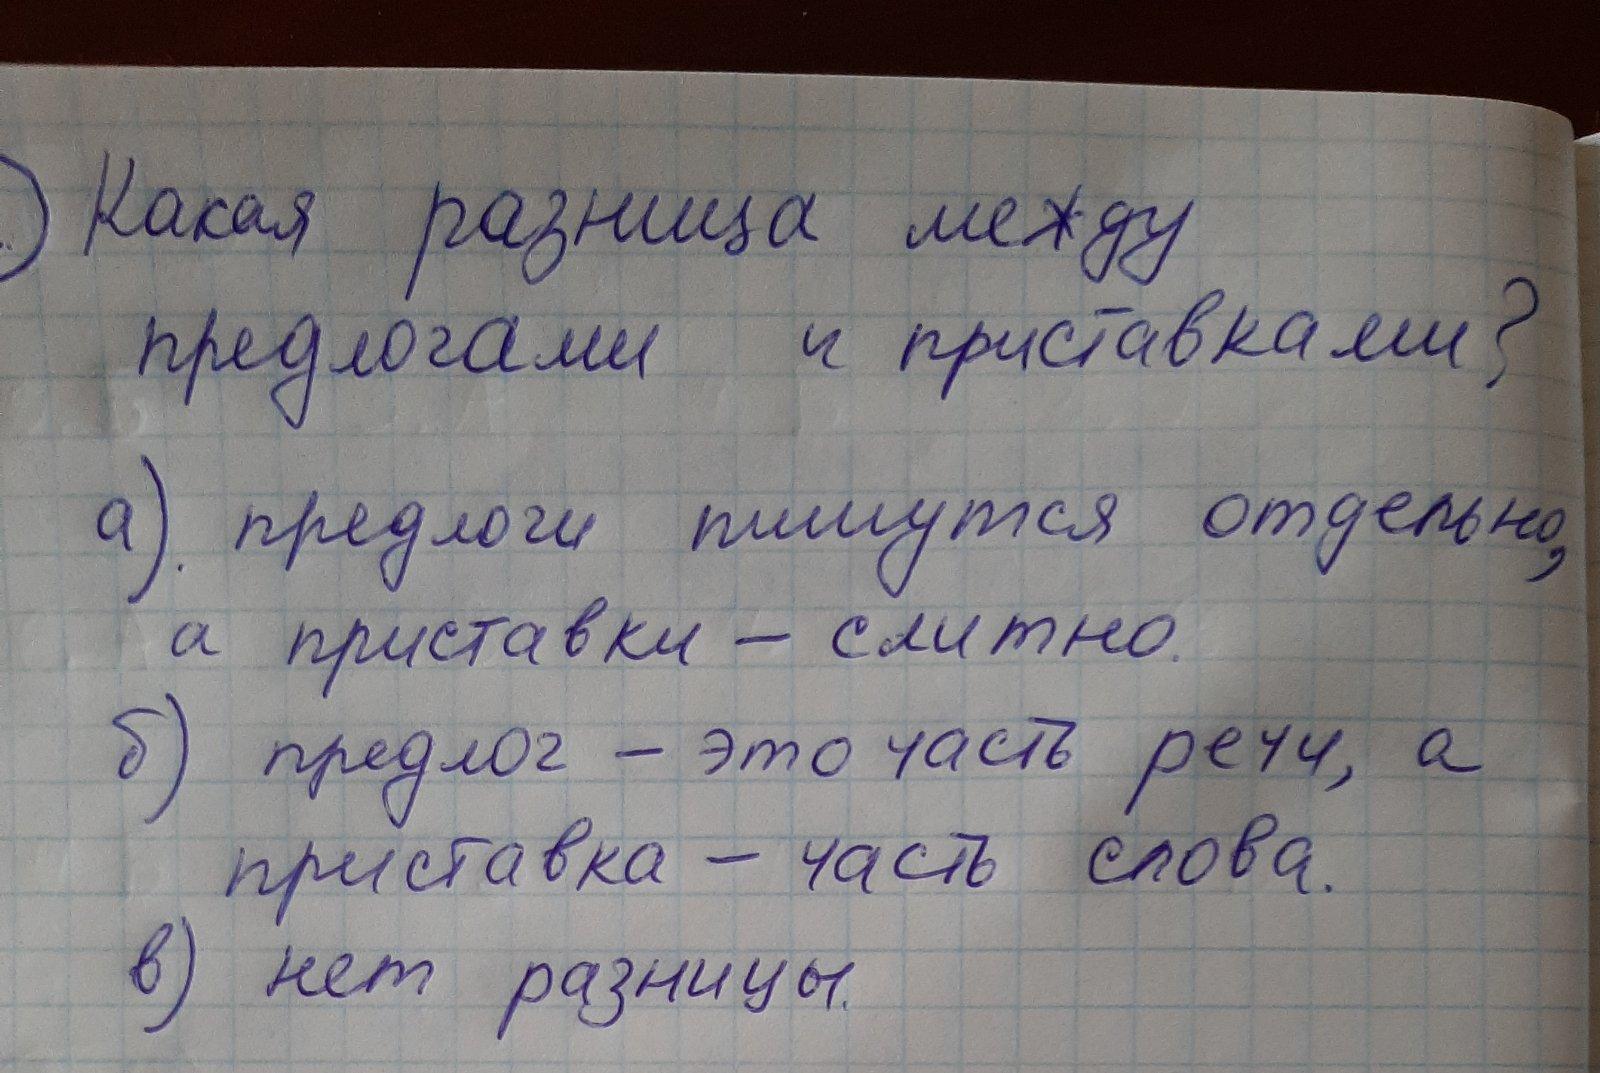 ) Какая разница между
предлогами и приставками?
а). предлоги пишутся отдельно,
а приставки – слитно.
б) предлог – это часть речи, а
приставка – часть слова.
в) нет разницы.